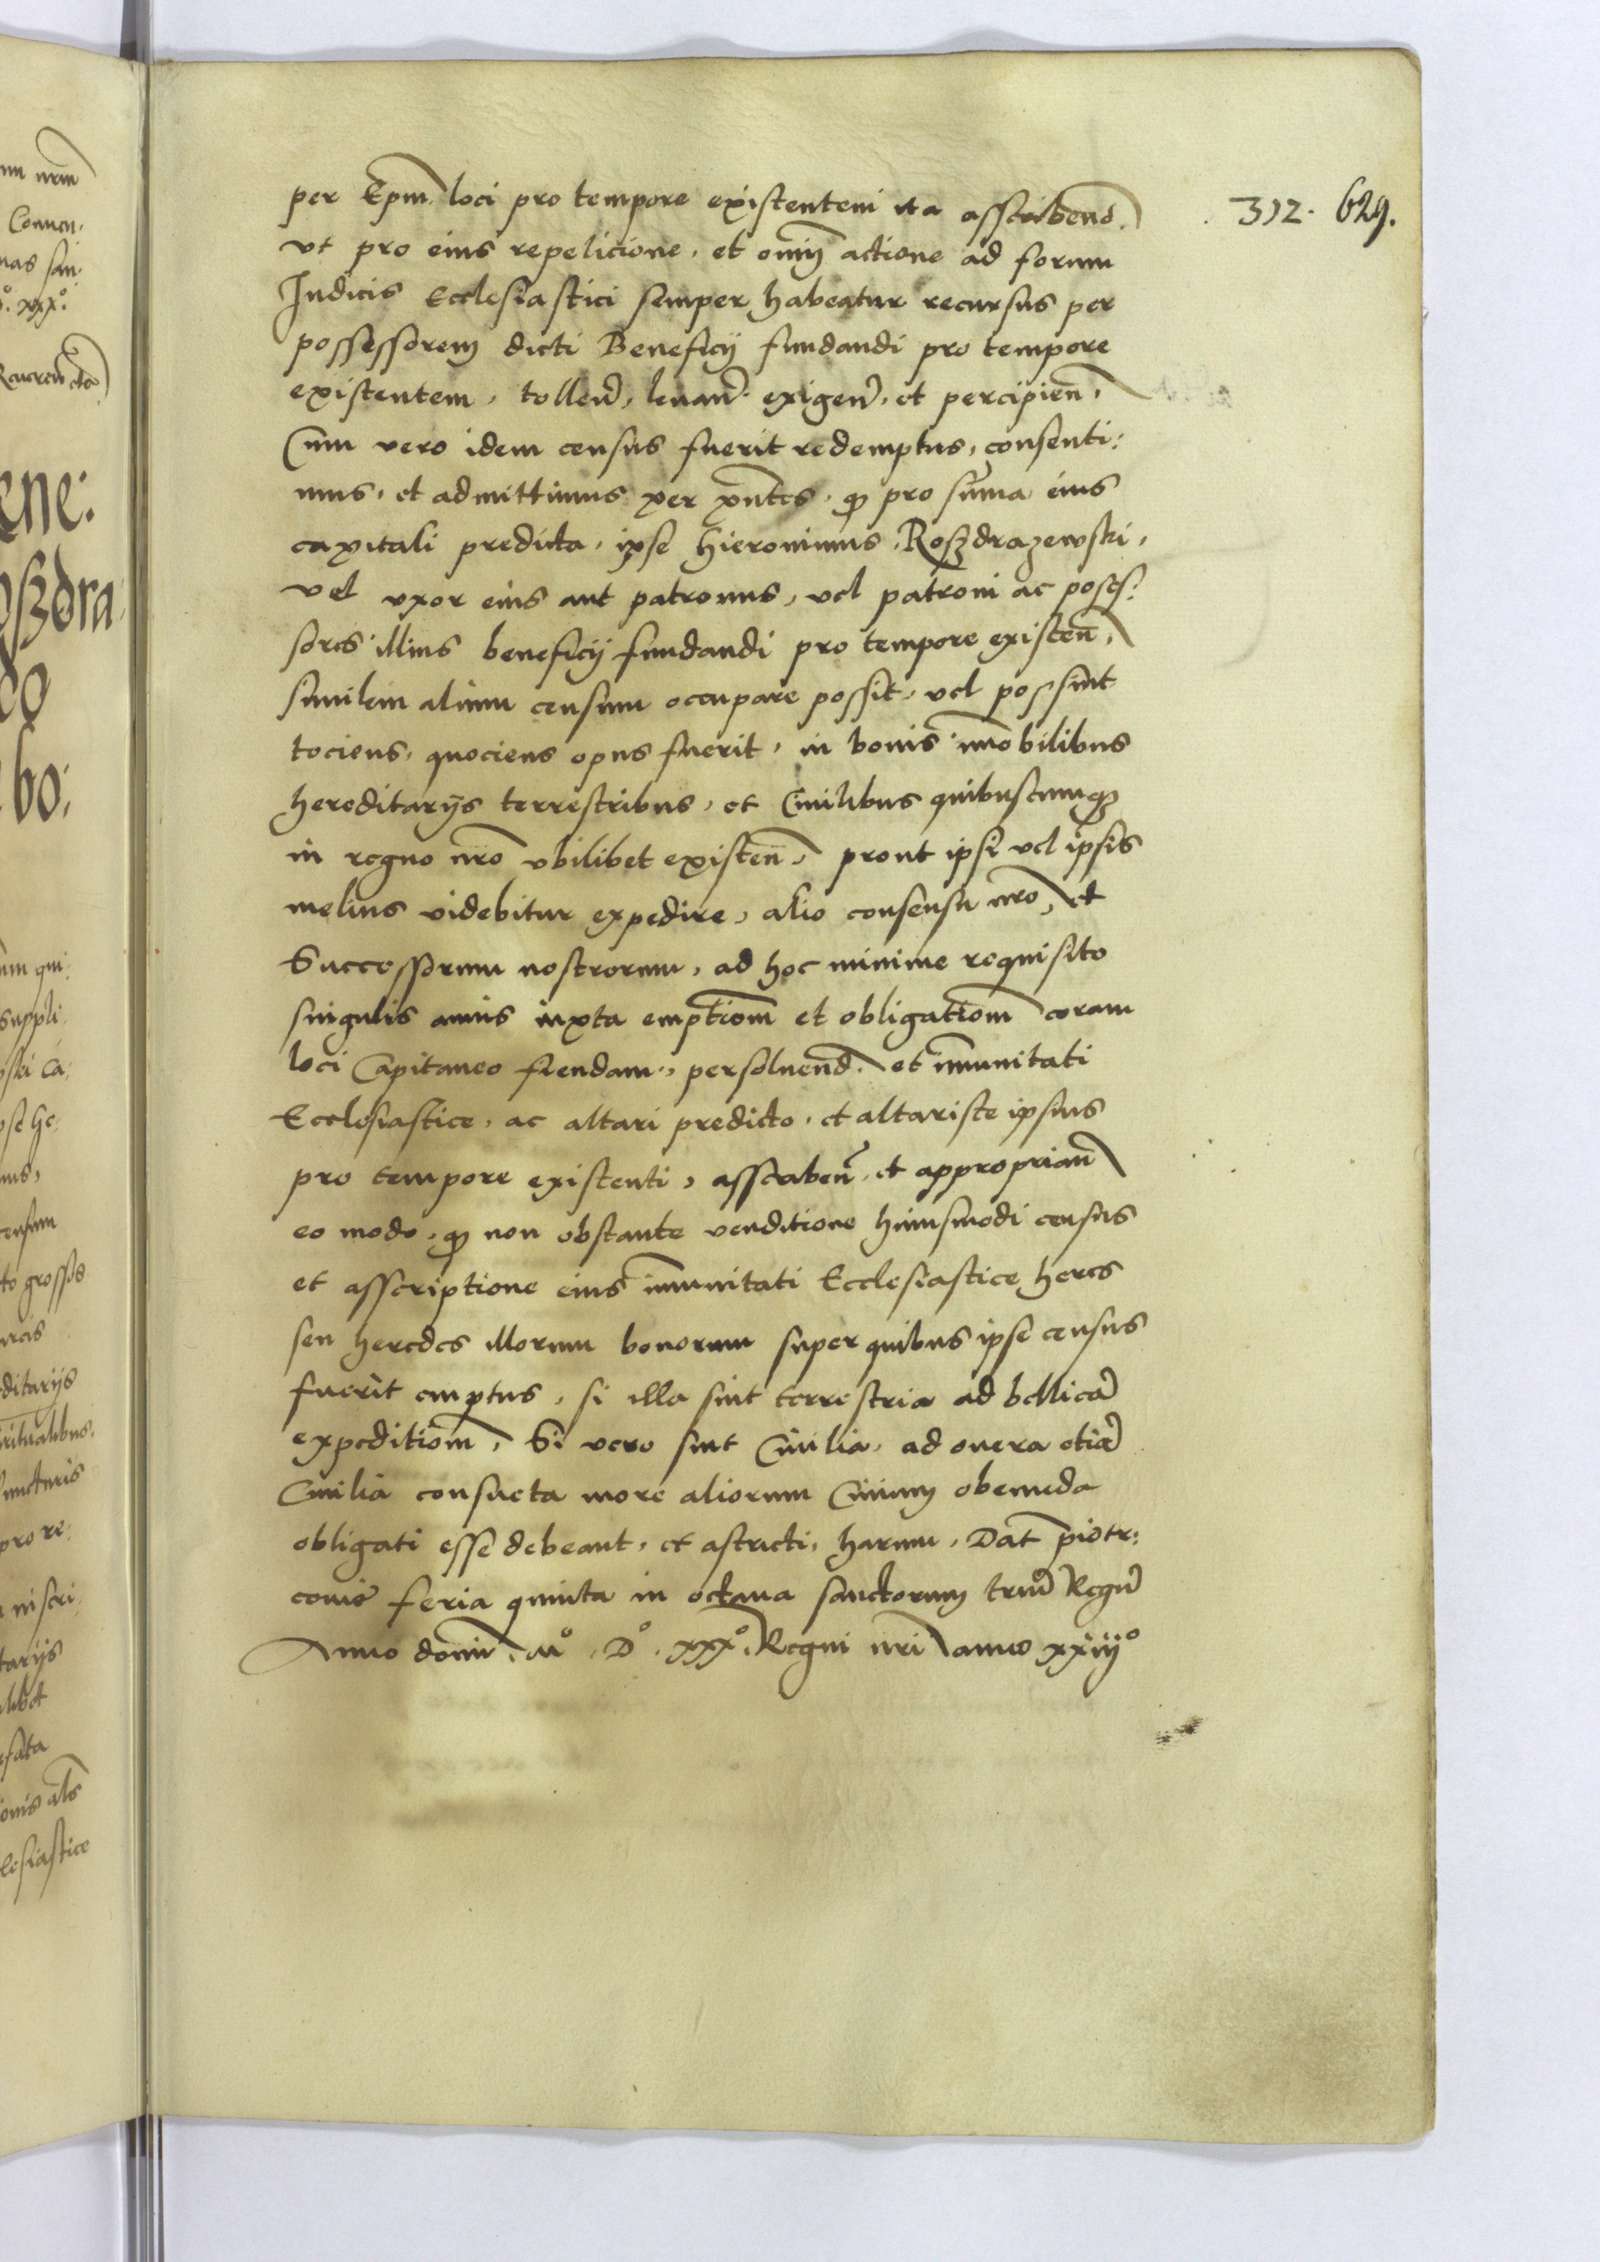 312. 629.
per Epm loci pro tempore existentem ita asscribend.
vt pro eius repeticione, et omni actione ad forum
Judicis Ecclesiastici semper habeatur recursus per
possessorem dicti Beneficij fundandi pro tempore
existentem, tollen, levan, exigen, et percipien,
Cum vero idem census fuerit redemptus, consenti:
mus, et admittimus per pntes, q pro suma eius
capitali predicta, ipse Hieronimus Roszdrazewski,
vel vxor eius aut patronus, vel patroni ac posses:
sores illius beneficij fundandi pro tempore existen,
similem alium censum occupare possit, vel possint
tociens, quociens opus fuerit, in bonis imobilibus
hereditarijs terrestribus, et Civilibus quibuscumq
in regno nro vbilibet existen, prout ipsi vel ipsis
melius videbitur expedire, alio consensu nro, et
Successorum nostrorum, ad hoc minime requisito
singulis annis iuxta emptiom et obligatiom coram
loci Capitaneo fiendam, persoluend. et imunitati
Ecclesiastice, ac altari predicto, et altariste ipsius
pro tempore existenti, asscriben, et approprian
eo modo, q non obstante venditione huiusmodi census
et asscriptione eius imunitati Ecclesiastice heres
seu heredes illorum bonorum super quibus ipse census
fuerit emptus, si illa sint terrestria ad bellica
expeditiom, Si vero sint Civilia, ad onera etia
Civilia consueta more aliorum Civium obeunda
obligati esse debeant, et astricti, harum, Dat piotr:
covie feria quinta in octava sanctorum triu Regu
Anno domi, M°. D°. xxx°. Regni nri anno xxiiij°